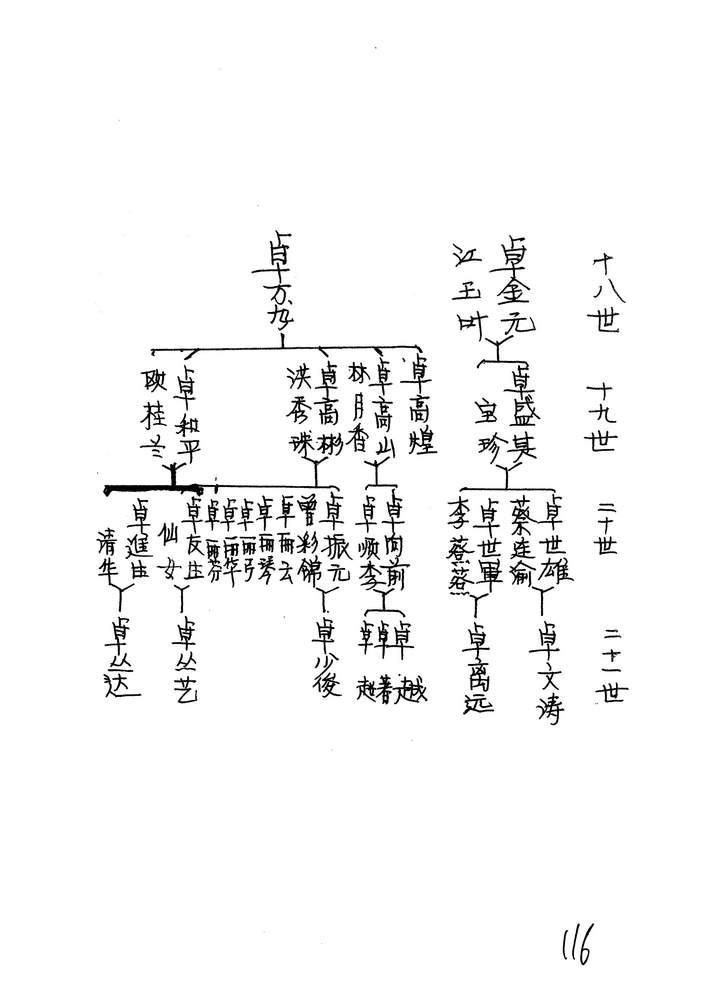 十八世
卓金元
江玉叶
卓万
十九世
卓盛其
宝珍
卓高煌
卓高山
林月香
卓高彬
洪秀珠
卓和平
欧桂兰
二十世
卓世雄
蔡莲渝
卓世軍
李蓉蓉
卓向前
卓顺李
卓振元
曾彩锦
卓丽云
卓丽琴
卓丽
卓丽华
卓丽芬
卓友
仙女
卓進
清
二十一世
卓文涛
卓离远
卓越
卓著
卓越
卓少俊
卓丛艺
卓丛达
116